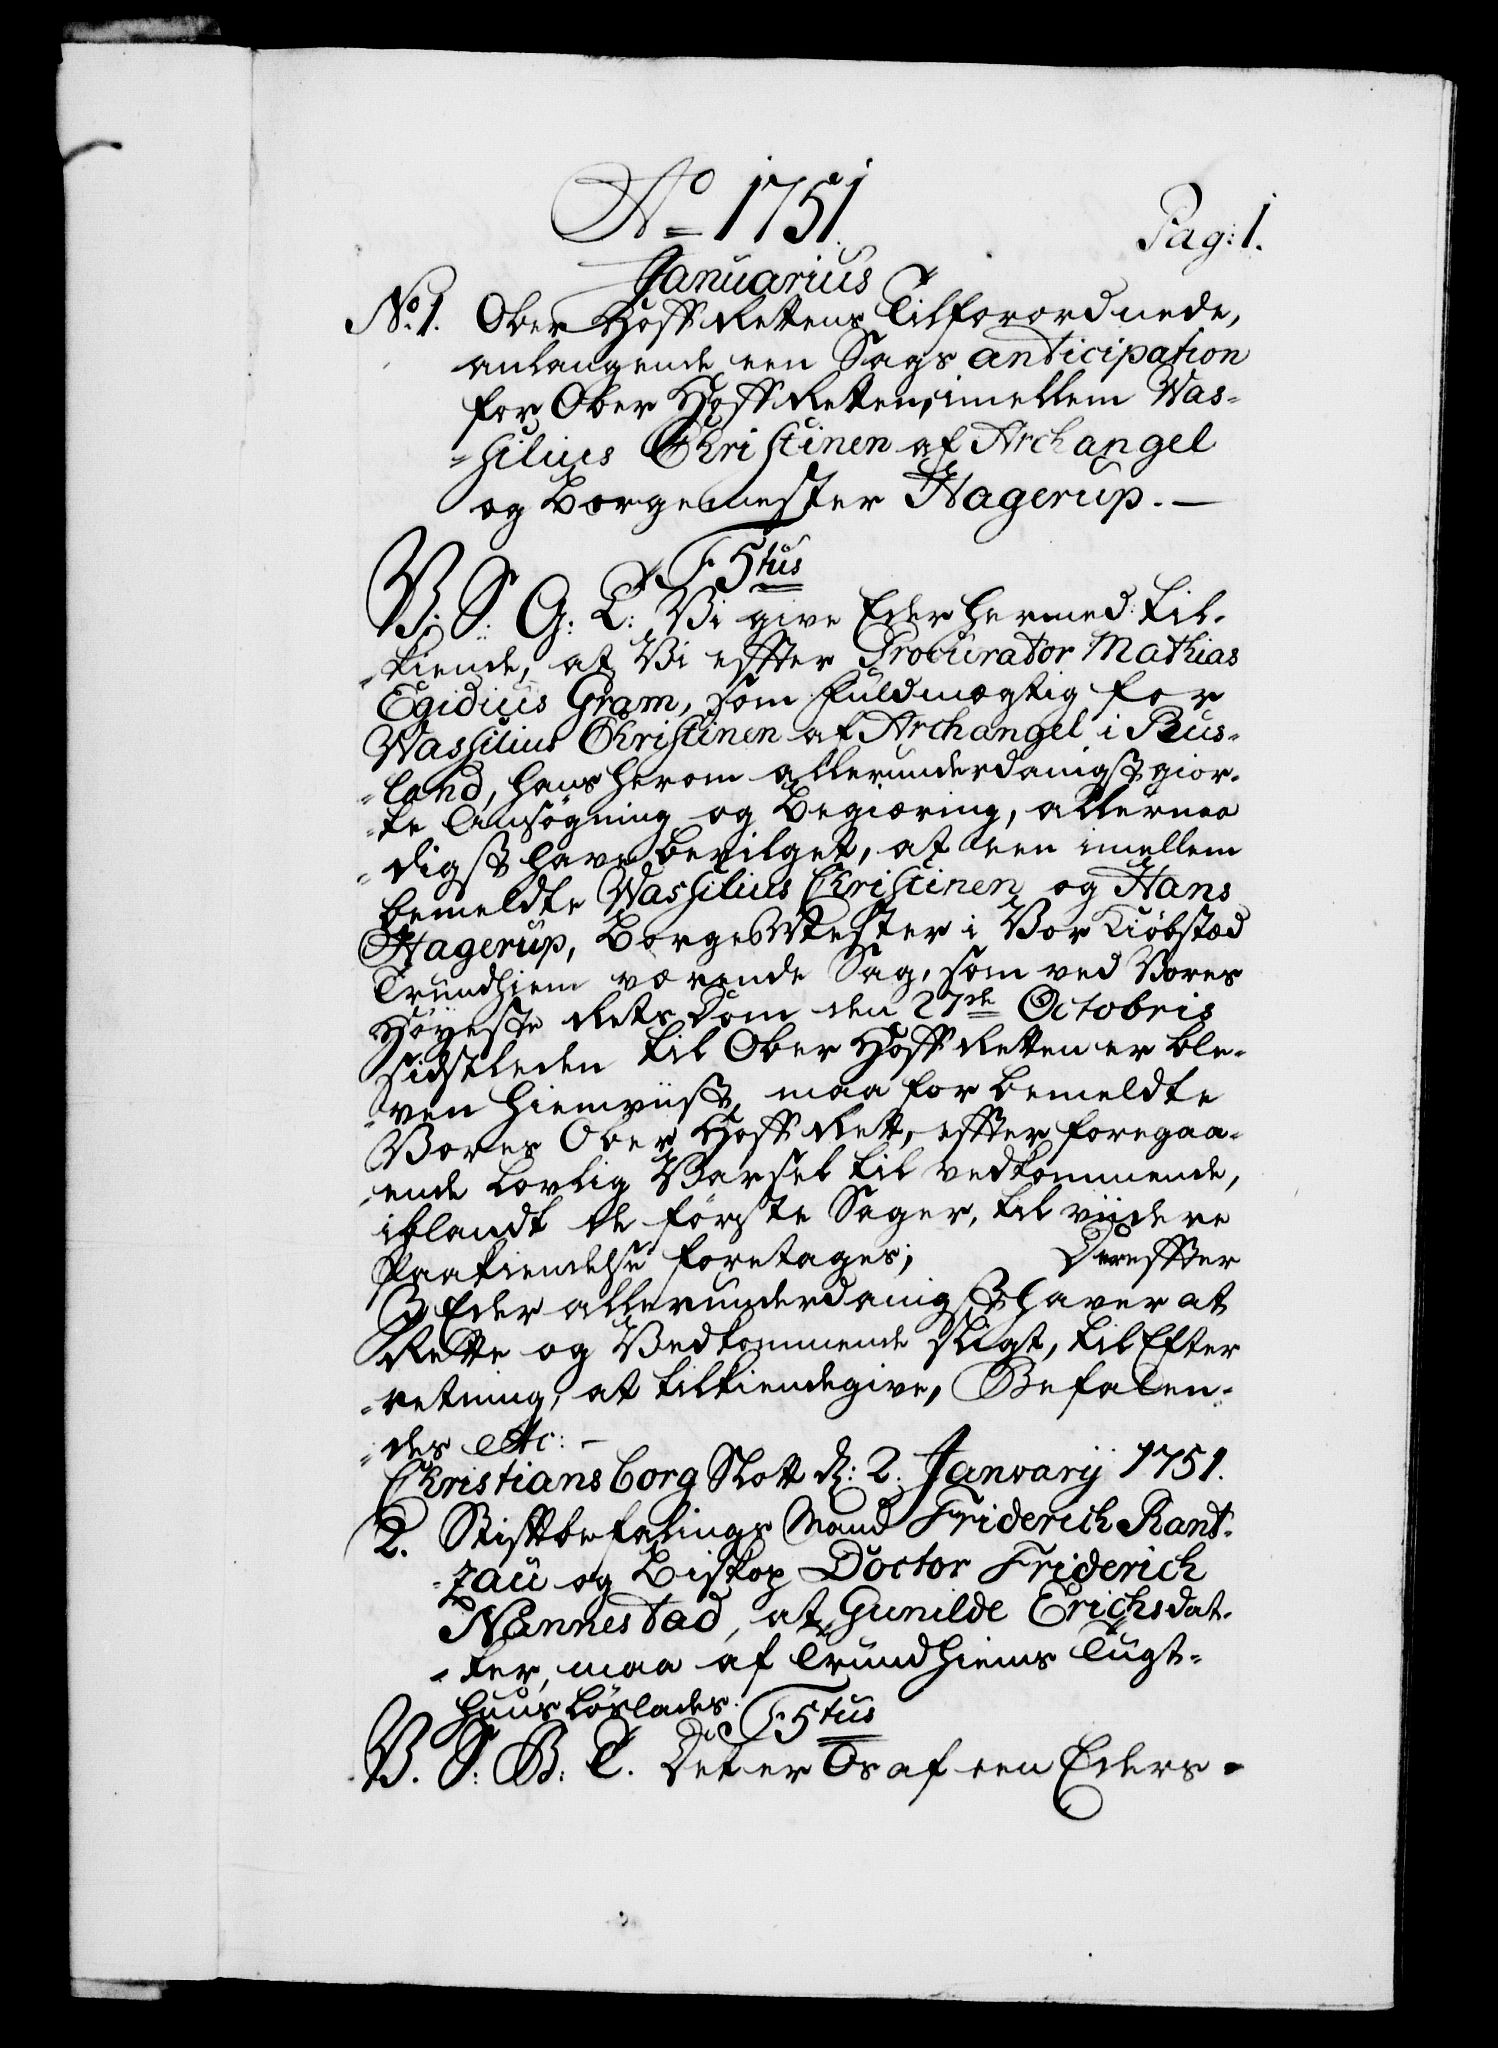 Ao 1751.
Pag: 1.
Januarius
No. 1. Ober Hoff Rettens Tilforordnede,
anlangende een Sags anticipation
for Ober Hoff Retten, imellem Was-
-silius Christinen af Archangel
og Borgemester Hagerup. —
F. 5tus
V: S: G: T: Vi give Eder hermed til-
-kiende, at Vi effter Procurator Mathias
Egidius Gram, som fuldmægtig for
Wassilius Christinen af Archangel i Rus-
-land, hans herom allerunderdanigst gior-
-te Ansøgning og Begiæring, allernaa
-digst have bevilget, at een imellem
bemeldte Wassilius Christinen og Hans
Hagerup, BorgeMester i Vor Kiøbstæd
Trundhiem værende Sag, som ved Vores
Høyeste Rets Dom den 27de Octobris
sidstleden til Ober Hoff Retten er ble-
-ven hiemviist, maa for bemeldte
Vores Ober Hoff Rett, effter foregaa-
-ende lovlig Varsel til vedkommende,
iblandt de første Sager, til viidere
Paakiendelse foretages; Dereffter
I Eder allerunderdanigst haver at
Rette og Vedkommende sligt, til Efter
-retning, at tilkiendegive, Befalen-
-des etc: —
Christiansborg Slott d: 2. January 1751.
2. Stiftbefalings Mand Friderich Rant-
-zau og Biskop Doctor Friderich
Nannestad, at Gunilde Erichsdat-
-ter, maa af Trundhiems Tugt-
huus løslades. F. 5tus
V. S: B: T. Det er Os af een Eders